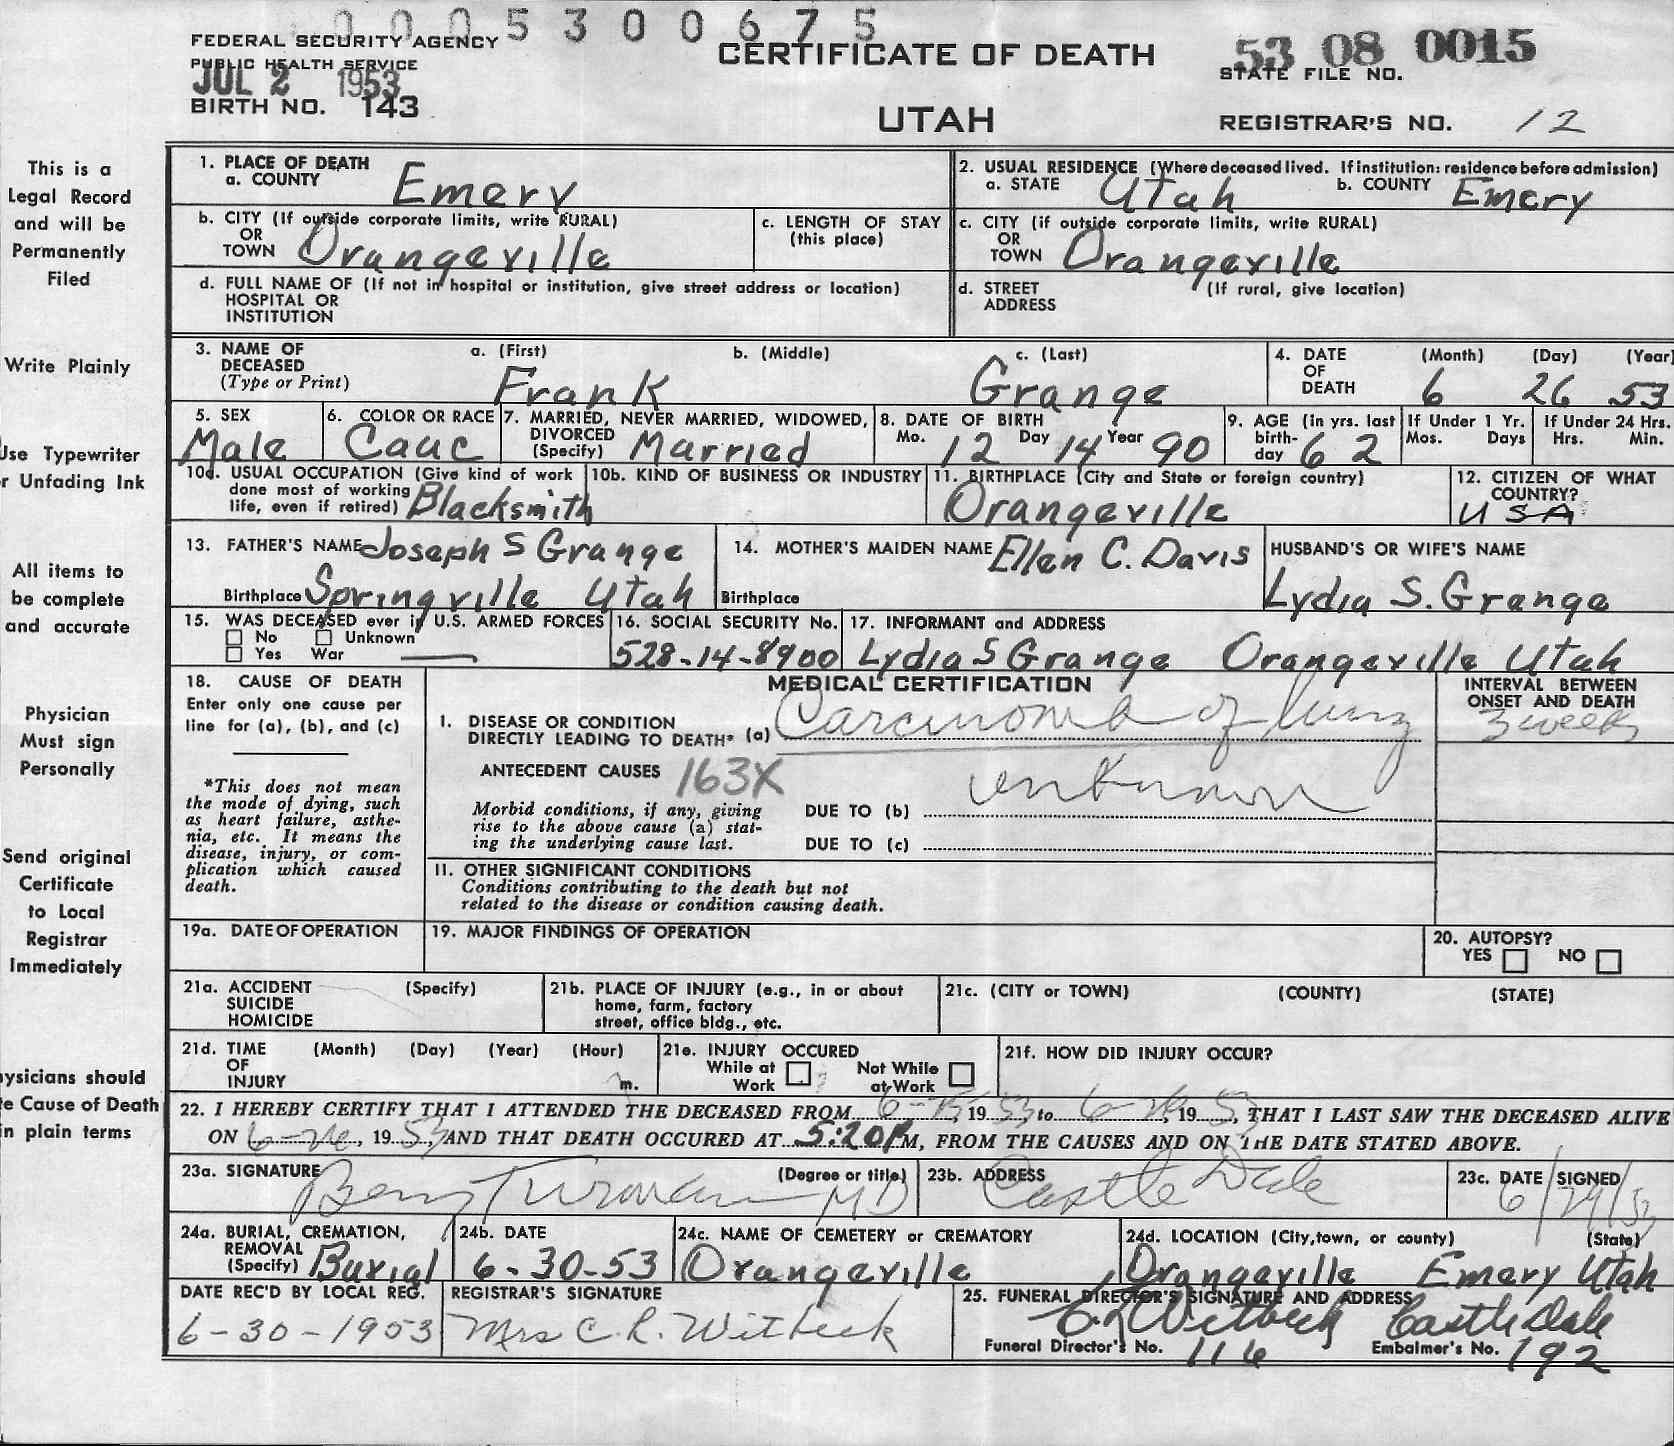 0005300675
FEDERAL SECURITY AGENCY
PUBLIC HEALTH SERVICE
JUL 2 1953
BIRTH NO. 143
CERTIFICATE OF DEATH
UTAH
53 08 0015
STATE FILE NO.
REGISTRAR'S NO. 12
This is a
Legal Record
and will be
Permanently
Filed
Write Plainly
Use Typewriter
r Unfading Ink
All items to
be complete
and accurate
Physician
Must sign
Personally
Send original
Certificate
to Local
Registrar
Immediately
ysicians should
e Cause of Death
n plain terms
1. PLACE OF DEATH
a. COUNTY Emery
2. USUAL RESIDENCE (Where deceased lived. If institution: residence before admission)
a. STATE Utah b. COUNTY Emery
b. CITY (If outside corporate limits, write RURAL)
OR
TOWN Orangeville
c. LENGTH OF STAY
(this place)
c. CITY (if outside corporate limits, write RURAL)
OR
TOWN Orangeville
d. FULL NAME OF (If not in hospital or institution, give street address or location)
HOSPITAL OR
INSTITUTION
d. STREET (If rural, give location)
ADDRESS
3. NAME OF DECEASED
(Type or Print)
a. (First) b. (Middle) c. (Last)
Frank Grange
4. DATE OF DEATH
(Month) (Day) (Year)
6 26 53
5. SEX
Male
6. COLOR OR RACE
Cauc
7. MARRIED, NEVER MARRIED, WIDOWED,
DIVORCED
(Specify) Married
8. DATE OF BIRTH
Mo. 12 Day 14 Year 90
9. AGE (in yrs. last
birth-
day 62
If Under 1 Yr.
Mos. Days
If Under 24 Hrs.
Hrs. Min.
10a. USUAL OCCUPATION (Give kind of work
done most of working
life, even if retired) Blacksmith
10b. KIND OF BUSINESS OR INDUSTRY
11. BIRTHPLACE (City and State or foreign country)
Orangeville
12. CITIZEN OF WHAT
COUNTRY?
USA
13. FATHER'S NAME Joseph S Grange
Birthplace Springville Utah
14. MOTHER'S MAIDEN NAME Ellen C. Davis
Birthplace
HUSBAND'S OR WIFE'S NAME
Lydia S. Grange
15. WAS DECEASED ever in U.S. ARMED FORCES
No Unknown
Yes War
16. SOCIAL SECURITY No.
528-14-8900
17. INFORMANT and ADDRESS
Lydia S Grange Orangeville Utah
18. CAUSE OF DEATH
Enter only one cause per
line for (a), (b), and (c)
*This does not mean
the mode of dying, such
as heart failure, asthe-
nia, etc. It means the
disease, injury, or com-
plication which caused
death.
MEDICAL CERTIFICATION
INTERVAL BETWEEN
ONSET AND DEATH
3 weeks
I. DISEASE OR CONDITION
DIRECTLY LEADING TO DEATH* (a) Carcinoma of lung
ANTECEDENT CAUSES 163X
Morbid conditions, if any, giving
rise to the above cause (a) stat-
ing the underlying cause last.
DUE TO (b) unknown
DUE TO (c)
II. OTHER SIGNIFICANT CONDITIONS
Conditions contributing to the death but not
related to the disease or condition causing death.
19a. DATE OF OPERATION
19. MAJOR FINDINGS OF OPERATION
20. AUTOPSY?
YES NO
21a. ACCIDENT (Specify)
SUICIDE
HOMICIDE
21b. PLACE OF INJURY (e.g., in or about
home, farm, factory
street, office bldg., etc.
21c. (CITY or TOWN) (COUNTY) (STATE)
21d. TIME (Month) (Day) (Year) (Hour)
OF
INJURY m.
21e. INJURY OCCURED
While at Work Not While at Work
21f. HOW DID INJURY OCCUR?
22. I HEREBY CERTIFY THAT I ATTENDED THE DECEASED FROM 6-15 1953 to 6-26, 1953, THAT I LAST SAW THE DECEASED ALIVE
ON 6-26, 1953, AND THAT DEATH OCCURED AT 5:20 PM, FROM THE CAUSES AND ON THE DATE STATED ABOVE.
23a. SIGNATURE (Degree or title)
Turman MD
23b. ADDRESS
Castle Dale
23c. DATE SIGNED
6/29/53
24a. BURIAL, CREMATION,
REMOVAL
(Specify) Burial
24b. DATE
6-30-53
24c. NAME OF CEMETERY or CREMATORY
Orangeville
24d. LOCATION (City, town, or county) (State)
Orangeville Emery Utah
DATE REC'D BY LOCAL REG.
6-30-1953
REGISTRAR'S SIGNATURE
Mrs C. R. Witbeck
25. FUNERAL DIRECTOR'S SIGNATURE AND ADDRESS
C R Witbeck Castle Dale
Funeral Director's No. 116 Embalmer's No. 192